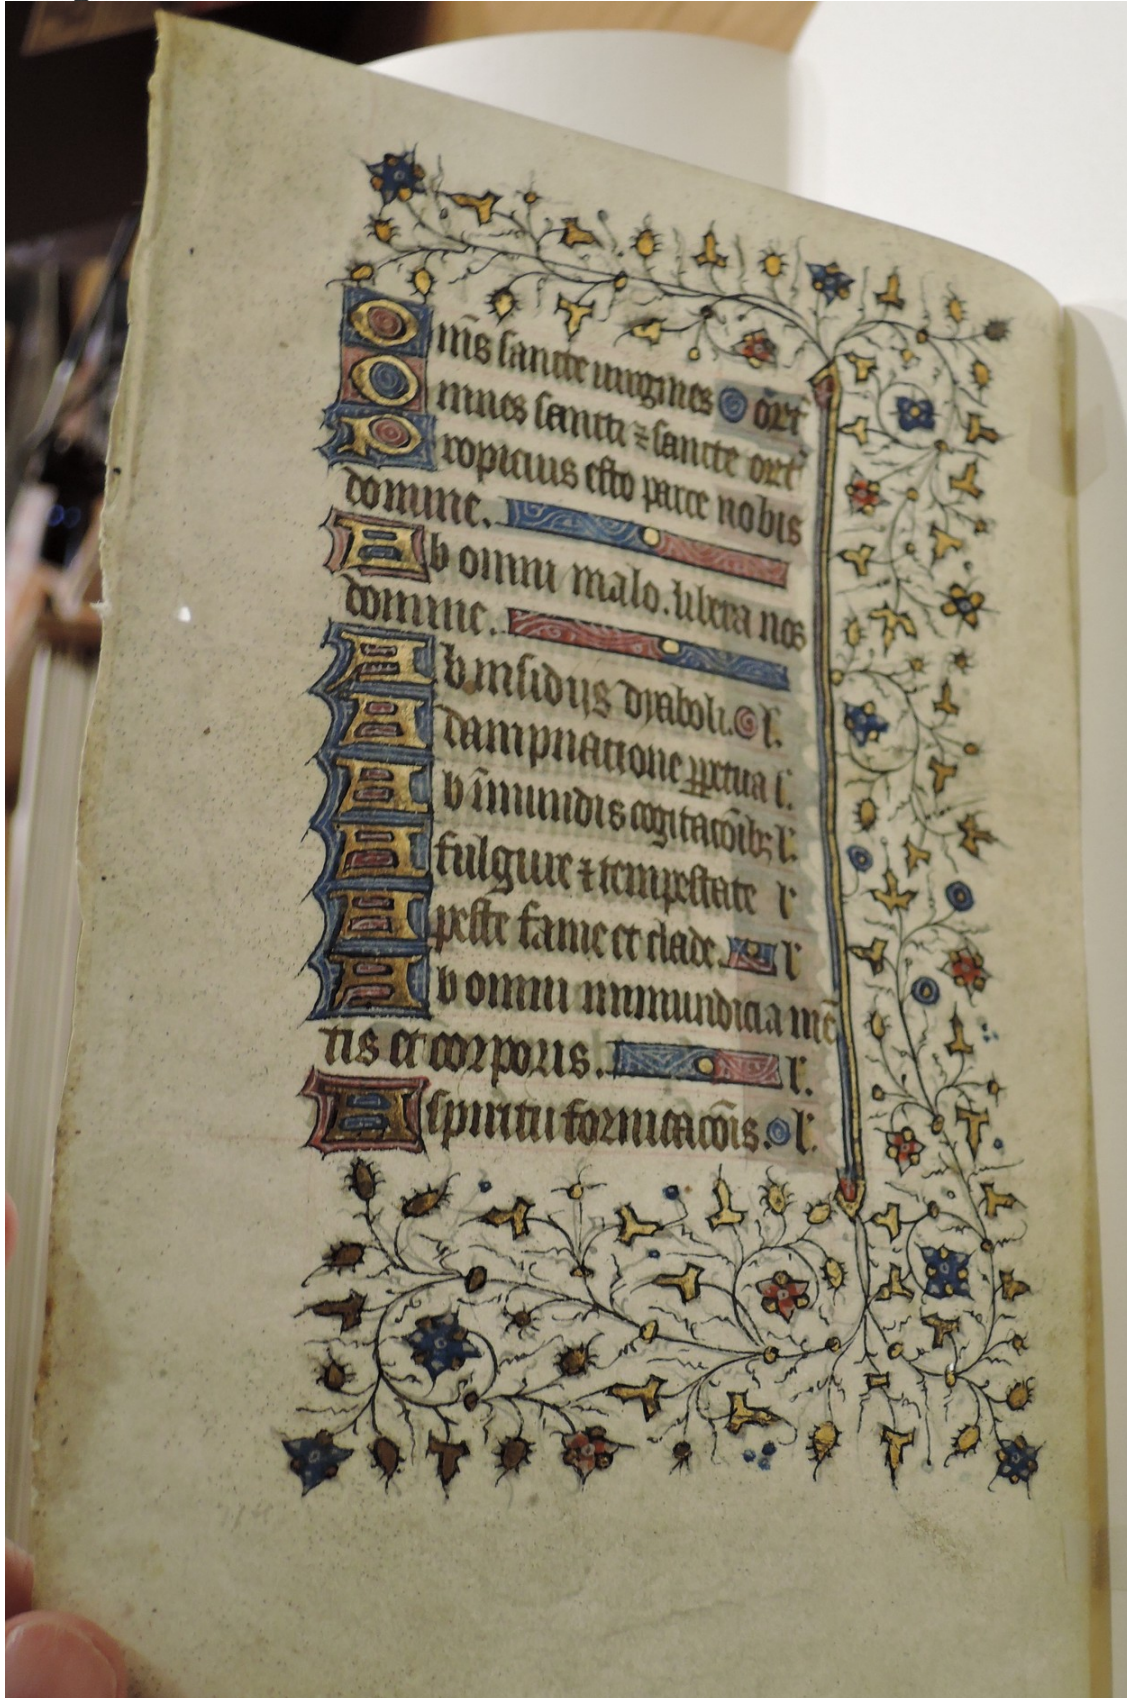 Om̄s sancte uirgines ort̄
Omnes sancti ⁊ sancte ort̄
Propicius esto parce nobis
domine.
Ab omni malo. libera nos
domine.
Ab insidijs dyaboli. l.
A dampnatione ꝑpetua l.
Ab īmundis cogitacōibꝫ l.
A fulgure ⁊ tempestate l
A peste fame et clade. l
Ab omni inmundicia mē
tis et corporis. l.
A spiritu fornicacōis. l.